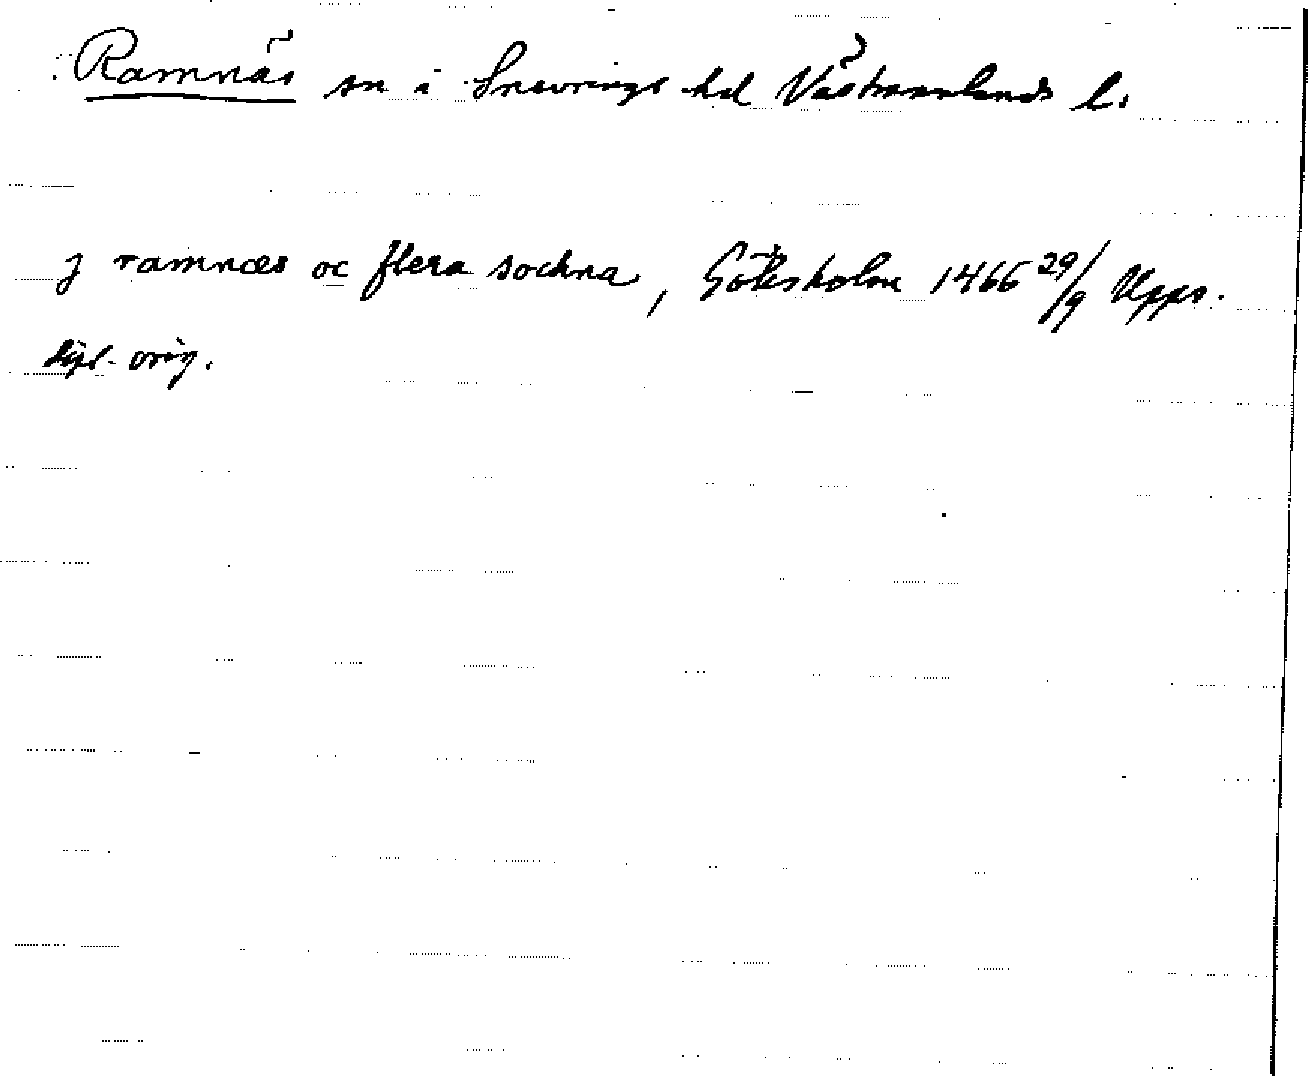 Ramnäs sn i Snevringe hd Västmanlands l.
j ramnæs oc flera sochna, Göksholm 1466 29/9 Upps.
dipl. orig.